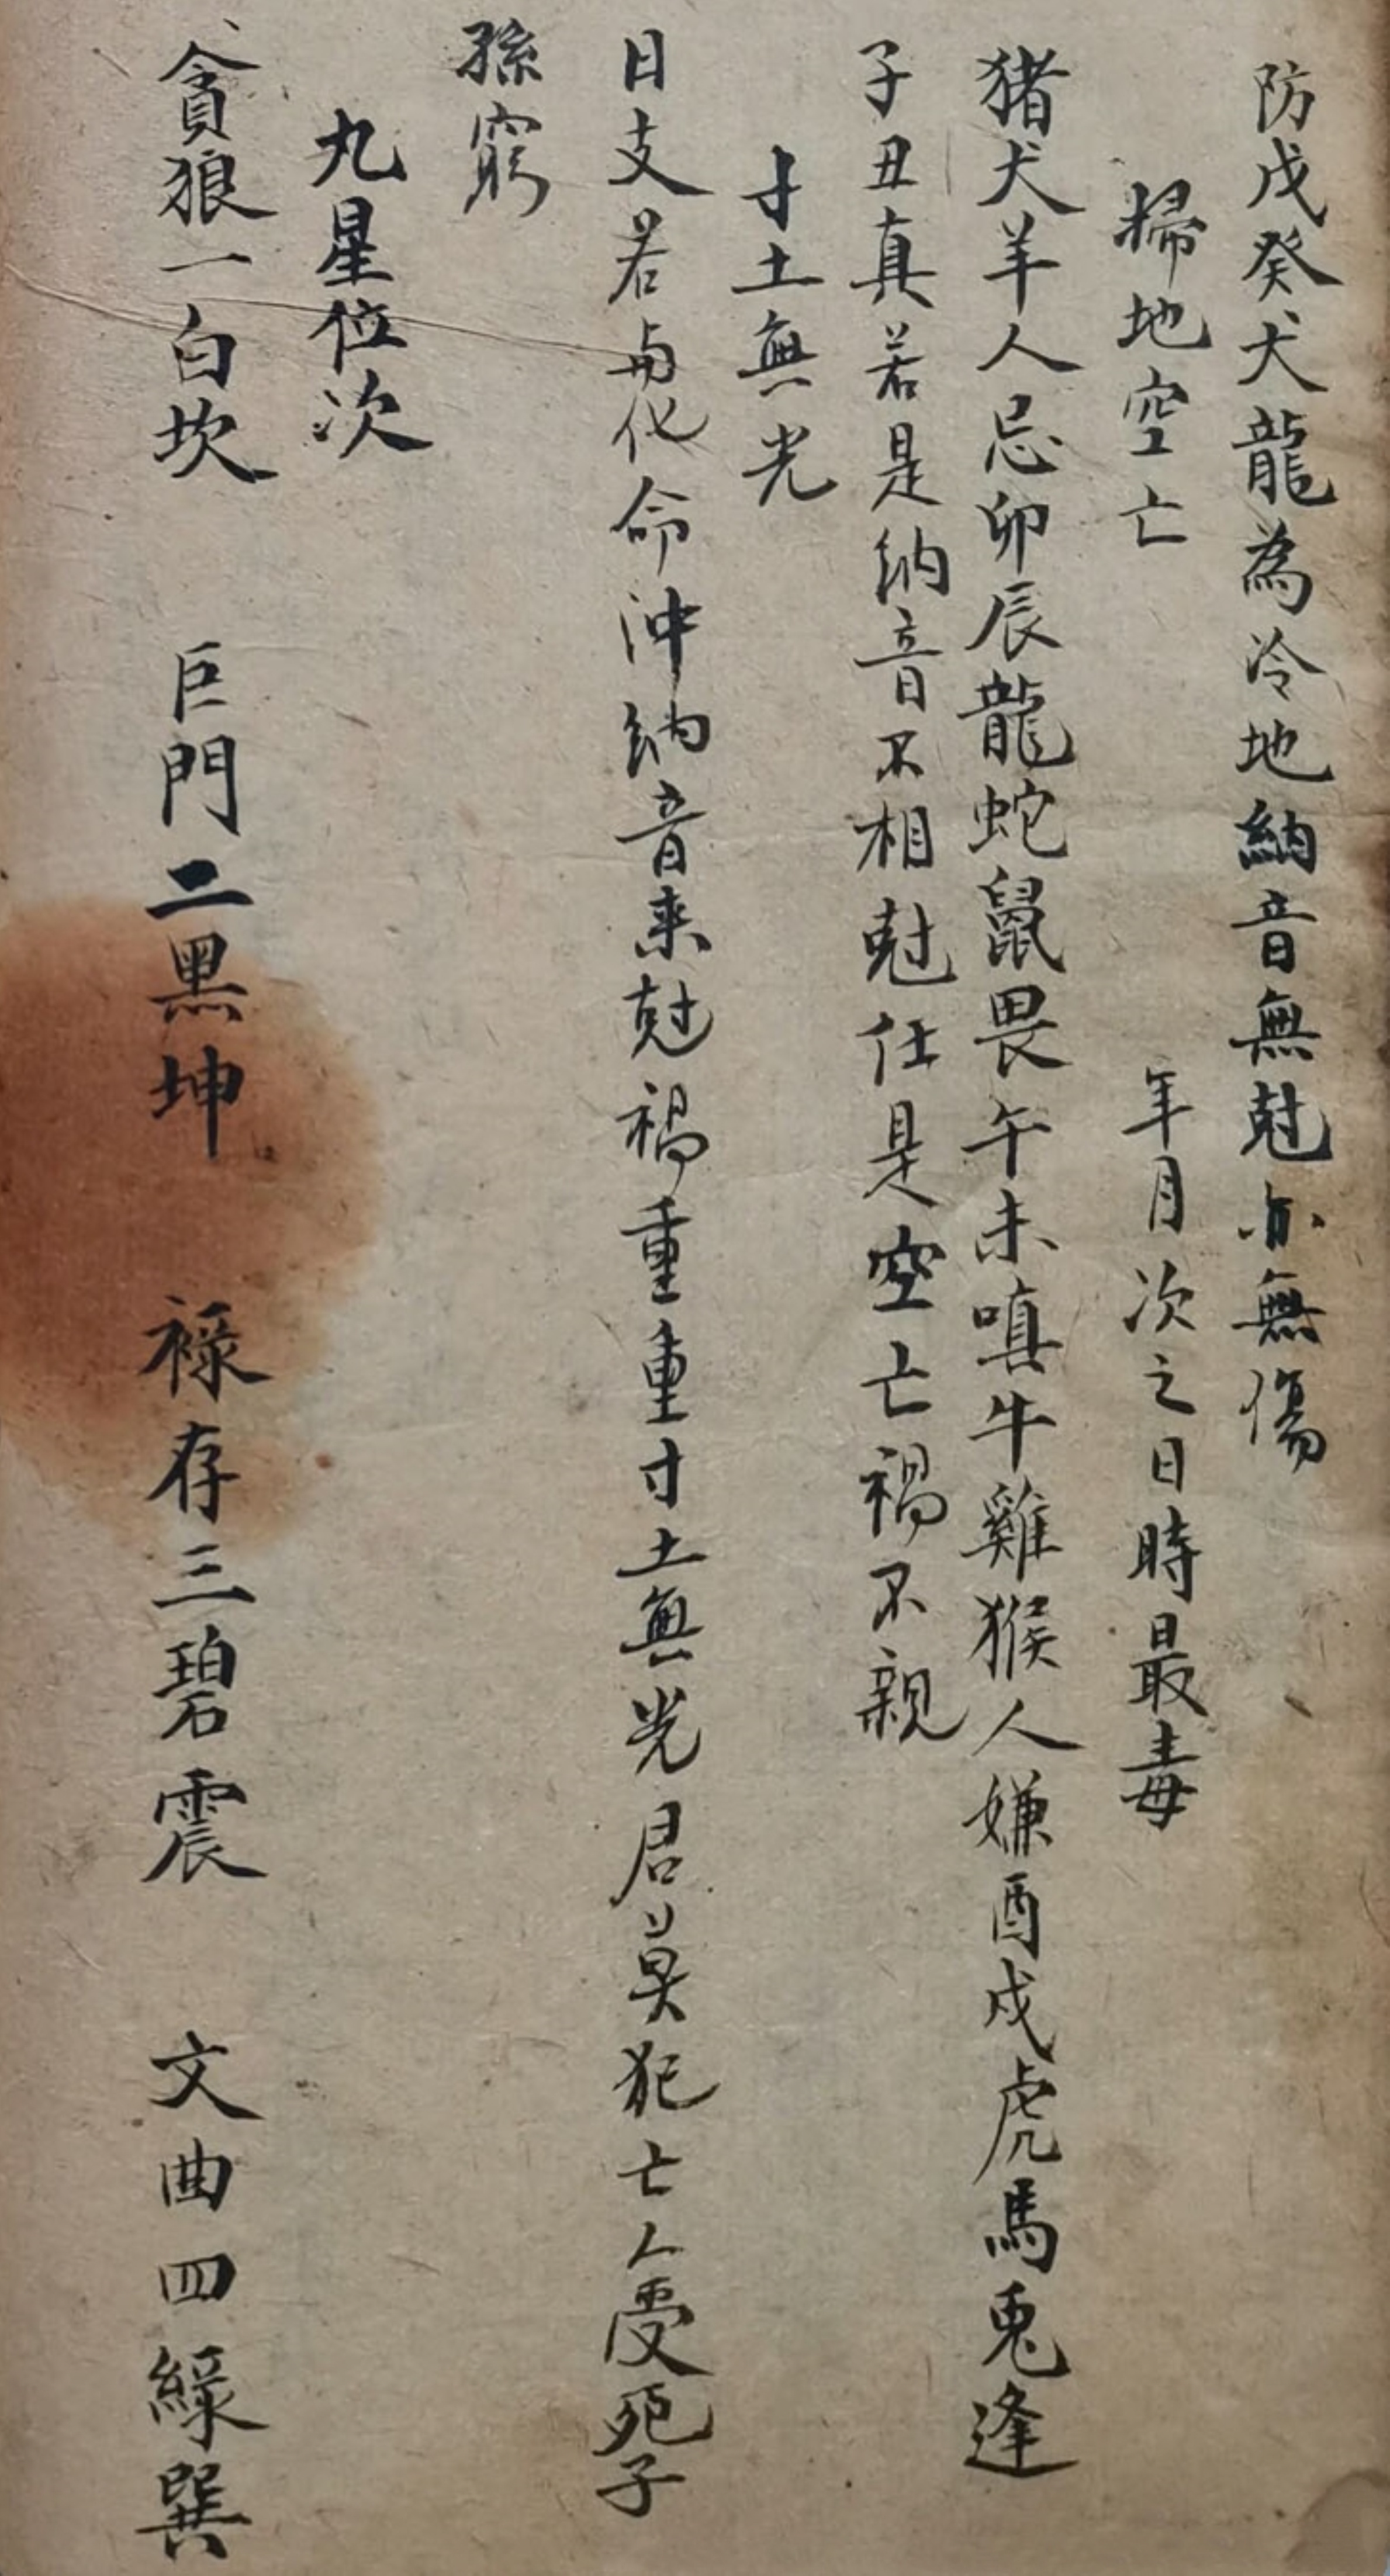 防戊癸犬龍為冷地納音無尅亦無傷
掃地空亡 年月次之日時最毒
猪犬羊人忌卯辰龍蛇鼠畏午未嗔牛雞猴人嫌酉戌虎馬兎逢
子丑真若是納音不相尅任是空亡禍不親
寸土無光
日支若与化命冲納音来尅禍重重寸土無光君莫犯亡人受死子
孫窮
九星位次
貪狼一白坎 巨門二黑坤 祿存三碧震 文曲四綠巽